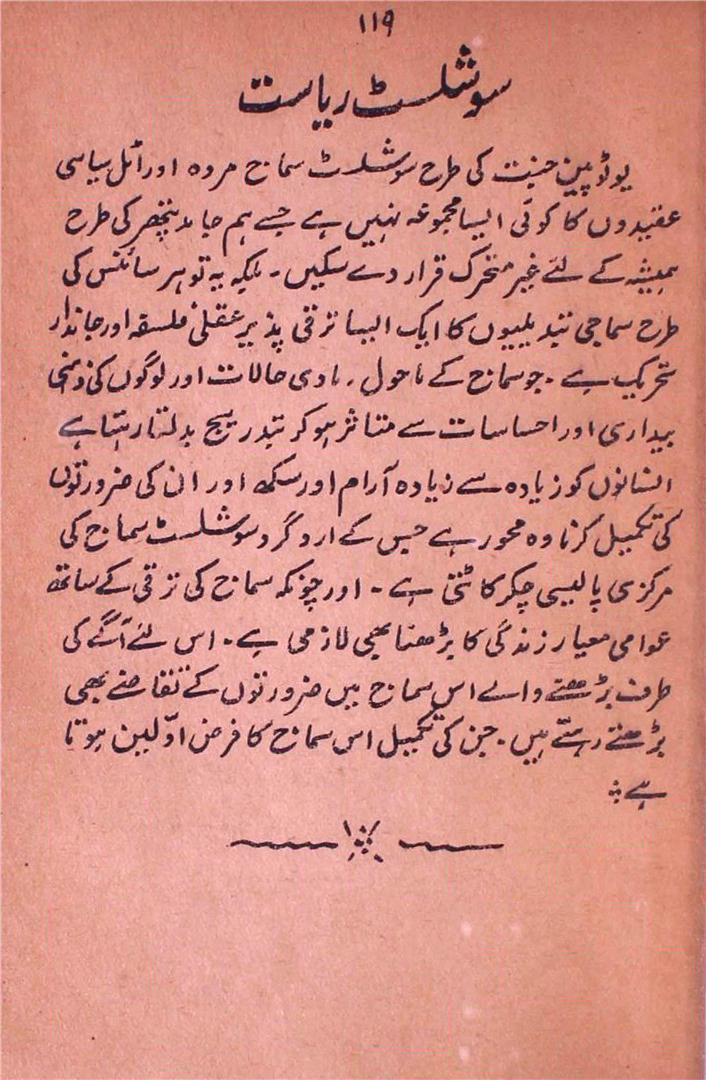 ۱۱۹
سوشلسٹ ریاست
یوٹوپین جنت کی طرح سوشلسٹ سماج مردہ اور اٹل سیاسی
عقیدوں کا کوئی ایسا مجموعہ نہیں ہے جسے ہم جامد پتھر کی طرح
ہمیشہ کے لئے غیر متحرک قرار دے سکیں۔ بلکہ یہ تو ہر سائنس کی
طرح سماجی تبدیلیوں کا ایک ایسا ترقی پذیر عقلی فلسفہ اور جاندار
تحریک ہے۔ جو سماج کے ماحول۔ مادی حالات اور لوگوں کی ذہنی
بیداری اور احساسات سے متاثر ہو کر بتدریج بدلتا رہتا ہے
انسانوں کو زیادہ سے زیادہ آرام اور سکھ اور ان کی ضرورتوں
کی تکمیل کرنا وہ محور ہے جس کے ارد گرد سوشلسٹ سماج کی
مرکزی پالیسی چکر کاٹتی ہے۔ اور چونکہ سماج کی ترقی کے ساتھ
عوامی معیار زندگی کا بڑھنا بھی لازمی ہے۔ اس لئے آگے کی
طرف بڑھنے والے اس سماج میں ضرورتوں کے تقاضے بھی
بڑھتے رہتے ہیں۔ جن کی تکمیل اس سماج کا فرض اوّلین ہوتا
ہے